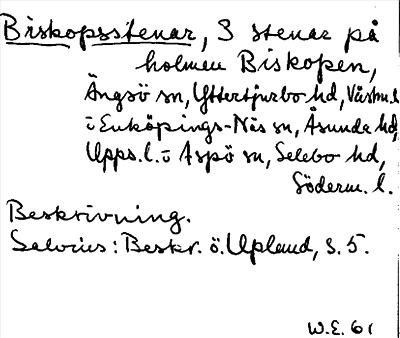 Biskopsstenar, 3 stenar på
holmen Biskopen,
Ängsö sn, Yttertjurbo hd, Västm. l.
i Enköpings-Näs sn, Åsunda hd,
Upps. l. i Aspö sn, Selebo hd,
Söderm. l.
Beskrivning.
Salvius: Beskr. ö. Upland, s. 5.
W.E. 61